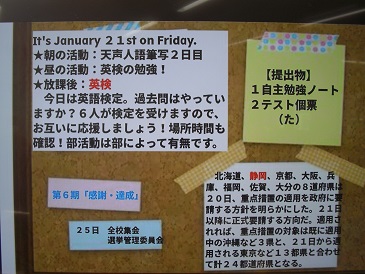 It's January 21st on Friday.
★朝の活動：天声人語筆写２日目
★昼の活動：英検の勉強！
★放課後：英検
　今日は英語検定。過去問はやってい
ますか？６人が検定を受けますので、
お互いに応援しましょう！場所時間も
確認！部活動は部によって有無です。
【提出物】
１自主勉強ノート
２テスト個票
（た）
第６期「感謝・達成」
２５日　全校集会
選挙管理委員会
　北海道、静岡、京都、大阪、兵
庫、福岡、佐賀、大分の８道府県は
２０日、重点措置の適用を政府に要
請する方針を明らかにした。２１日
以降に正式要請する方向だ。適用さ
れれば、重点措置の対象は既に適用
中の沖縄など３県と、２１日から適
用される東京など１３都県と合わせ
て計２４都道府県となる。